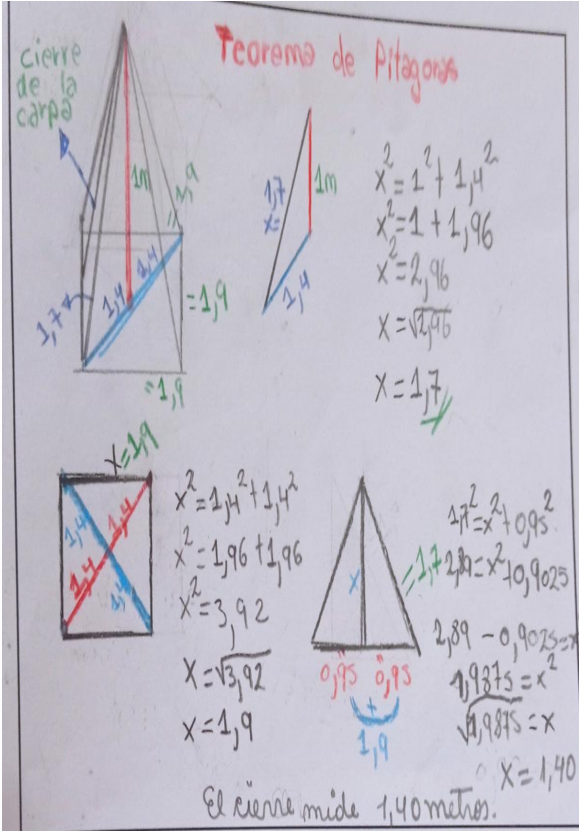 Teorema de Pitagoras
cierre
de la
carpa
1m
1,9
1,4
1,4
1,7
=1,9
=1,9
1,7
x=
1m
1,4
x²=1²+1,4²
x²=1+1,96
x²=2,96
x=√2,96
x=1,7
x=1,9
1,4
1,4
1,4
1,4
x²=1,4²+1,4²
x²=1,96+1,96
x²=3,92
x=√3,92
x=1,9
x
=1,7
0,95 0,95
+
1,9
1,7²=x²+0,95²
2,89=x²+0,9025
2,89-0,9025=x
1,9875=x²
√1,9875=x
x=1,40
El cierre mide 1,40 metros.